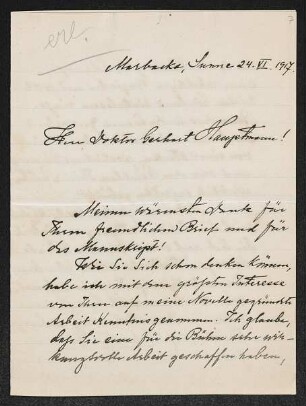 7
erl.
Marbacka, Sunne 24.VI.1917.
Herr Doktor Gerhart Hauptmann!
Meinen wärmsten Dank für
Ihren freundlichen Brief und für
das Manuskript!
Wie Sie Sich schon denken können,
habe ich mit dem grössten Interesse
von Ihrer auf meine Novelle gegründete
Arbeit Kenntnis genommen. Ich glaube,
dass Sie eine für die Bühne sehr wir-
kungsvolle Arbeit geschaffen haben,